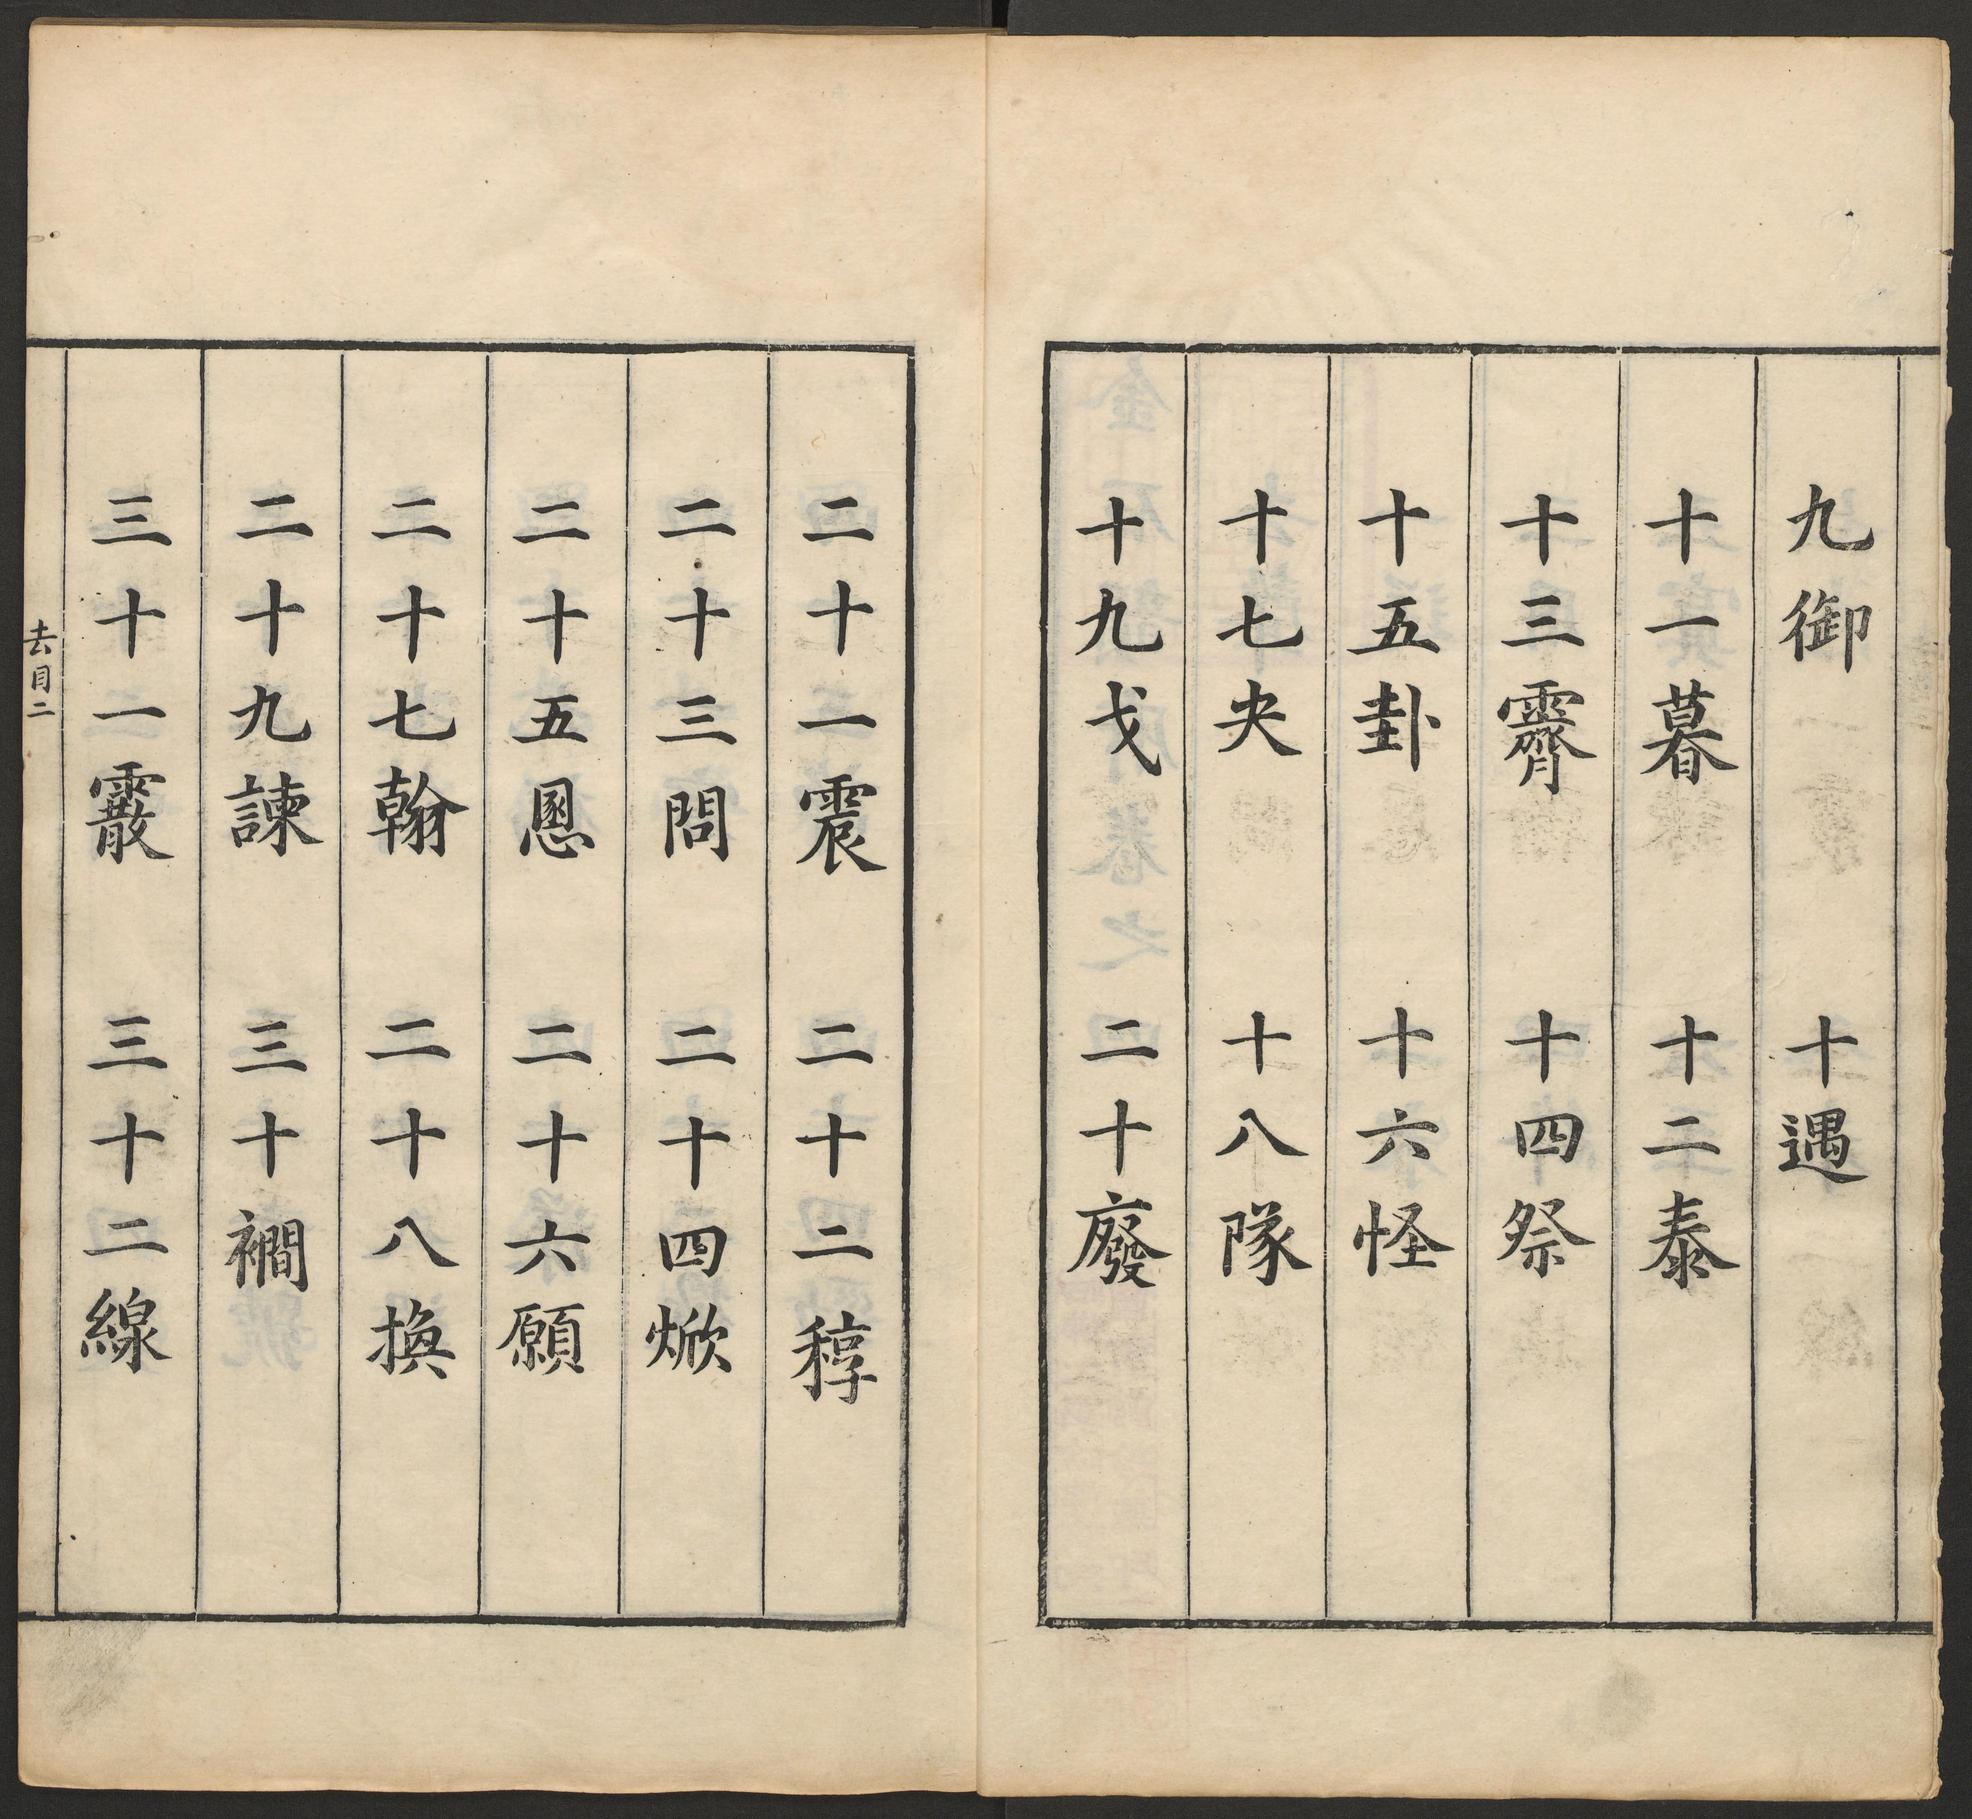 九御　十遇
十一暮　十二泰
十三霽　十四祭
十五卦　十六怪
十七夬　十八隊
十九戈　二十廢
二十一震　二十二稕
二十三問　二十四焮
二十五慁　二十六願
二十七翰　二十八換
二十九諫　三十襉
三十一霰　三十二線
去目二